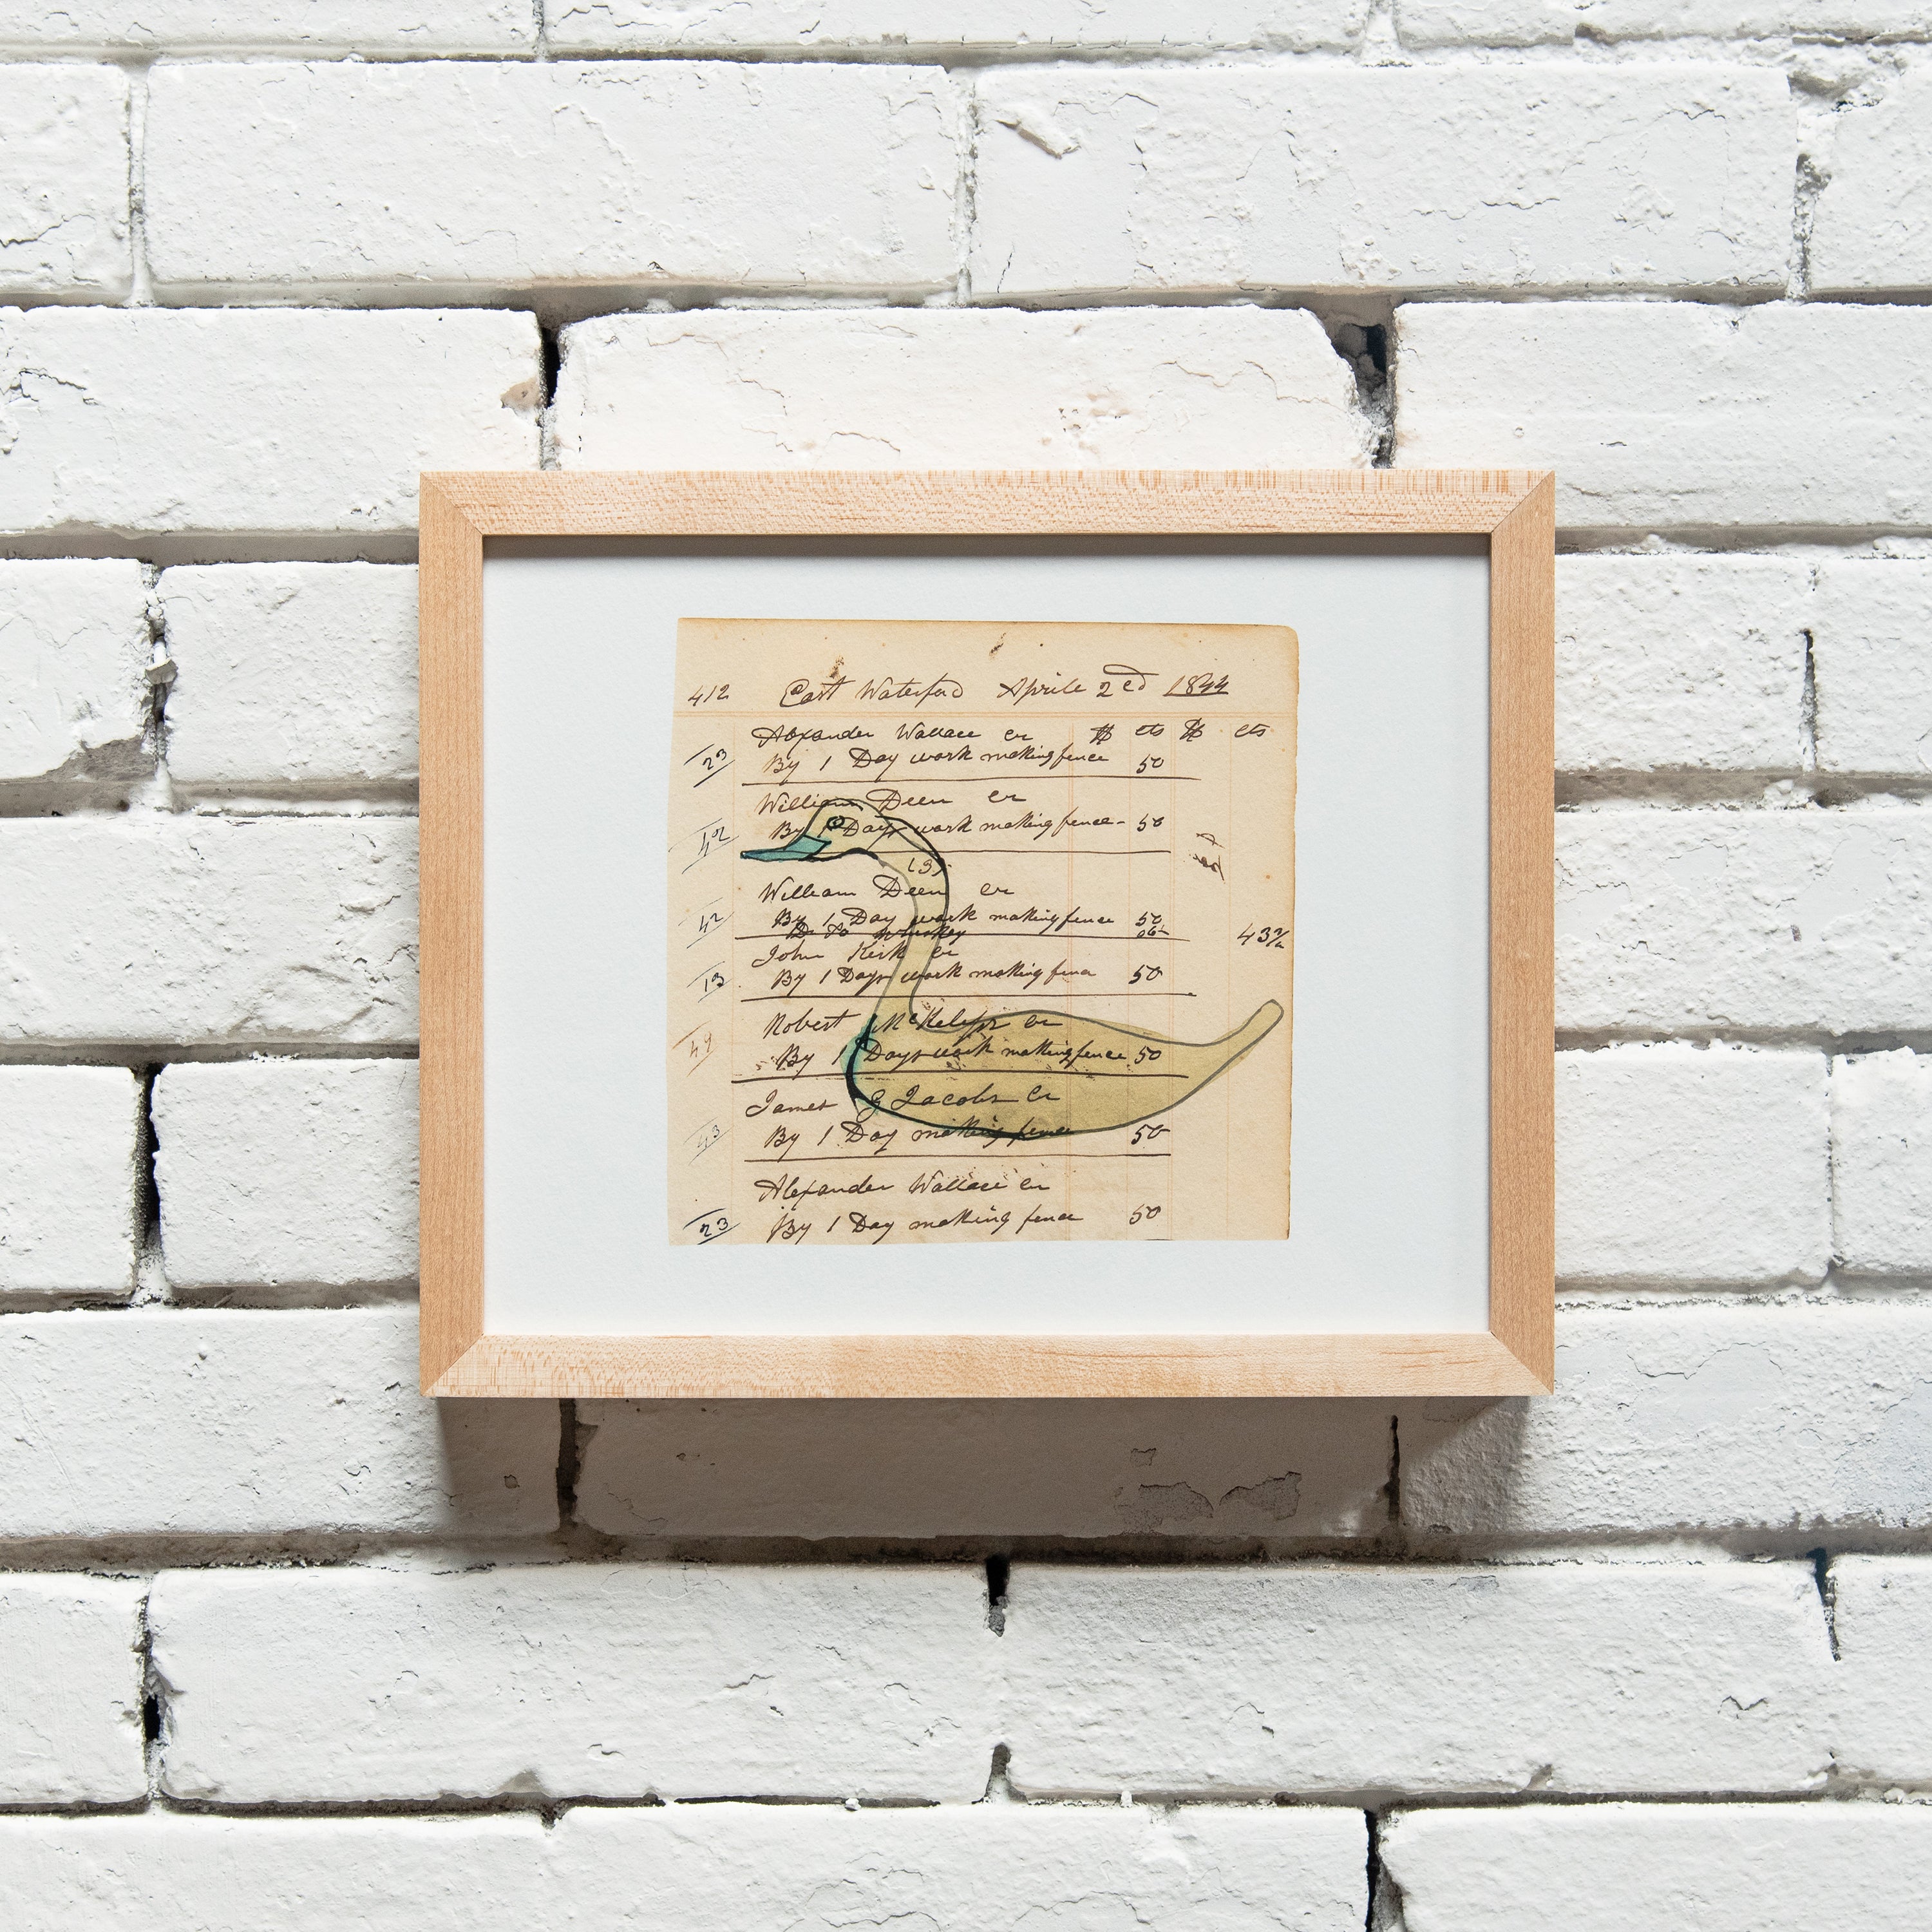 412 East Waterford Aprile 2ed 1844
Alexander Wallace cr $ cts $ cts
23 By 1 Day work making fence 50
William Deen cr
42 By 1 Days work making fence - 50
(3)
William Deen cr
42 By 1 Day work making fence 50
Do to whiskey 06¼ 43¾
John Kirk cr
13 By 1 Days work making fence 50
Robert cr
44 By 1 Days work making fence 50
James G Jacobs cr
43 By 1 Day making fence 50
Alexander Wallace cr
23 By 1 Day making fence 50